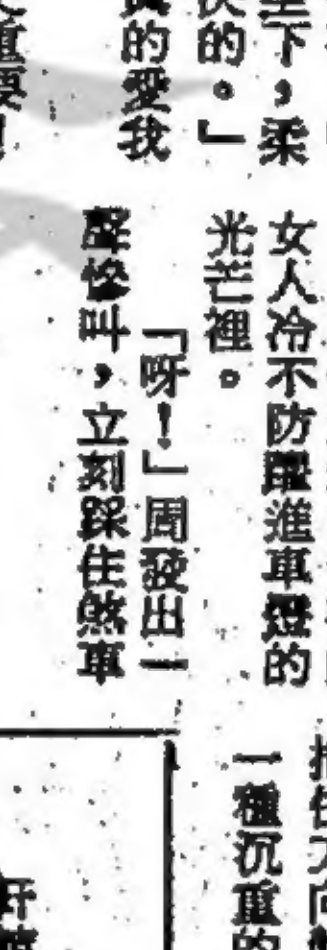 坐下，柔
的。」
的愛我
重要
女人冷不防躍進車燈的
光芒裡。
「呀！」周發出一
聲慘叫，立刻踩住煞車
一種沉重的